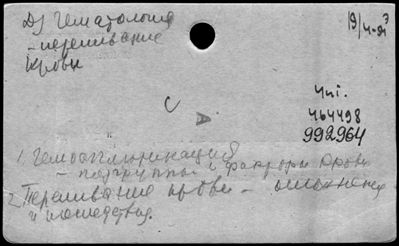 D) Гематология
- переливание
крови
19/4-81
С
А
Чні.
464498
992964
1. Гемоагглютинация
- подгруппы и факторы крови
2. Переливание крови - осложнения
и последствия.